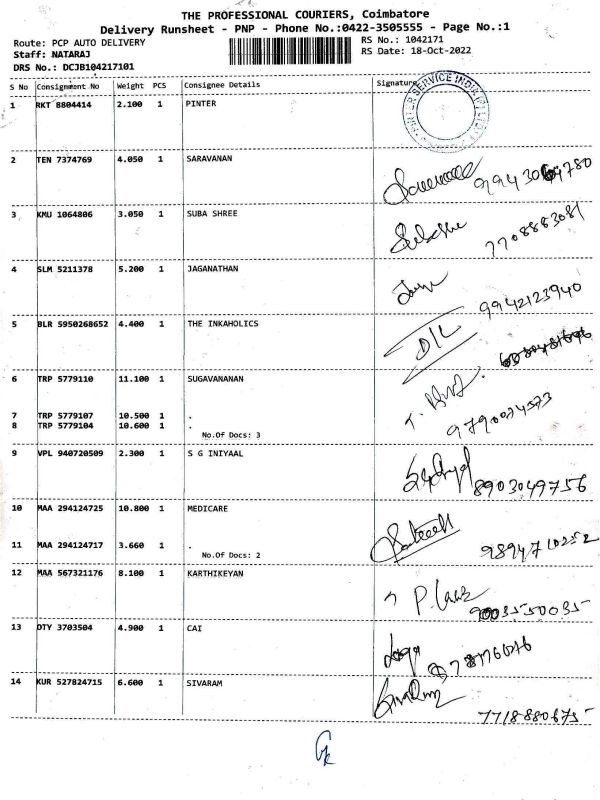 THE PROFESSIONAL COURIERS, Coimbatore
Delivery Runsheet - PNP - Phone No.:0422-3505555 - Page No.:1
Route: PCP AUTO DELIVERY
RS No.: 1042171
Staff: NATARAJ
RS Date: 18-Oct-2022
DRS No.: DCJB104217101
S No Consignment No Weight PCS Consignee Details Signature
1 RKT 8804414 2.100 1 PINTER
2 TEN 7374769 4.050 1 SARAVANAN
3 KMU 1064806 3.050 1 SUBA SHREE
7708883081
4 SLM 5211378 5.200 1 JAGANATHAN
9942123940
5 BLR 5950268652 4.400 1 THE INKAHOLICS
D/L
6 TRP 5779110 11.100 1 SUGAVANANAN
7 TRP 5779107 10.500 1 .
8 TRP 5779104 10.600 1 .
9790074573
No.Of Docs: 3
9 VPL 940720509 2.300 1 S G INIYAAL
8903049756
10 MAA 294124725 10.800 1 MEDICARE
11 MAA 294124717 3.660 1 .
9894710252
No.Of Docs: 2
12 MAA 567321176 8.100 1 KARTHIKEYAN
9003550035
13 DTY 3703504 4.900 1 CAI
14 KUR 527824715 6.600 1 SIVARAM
7718880675